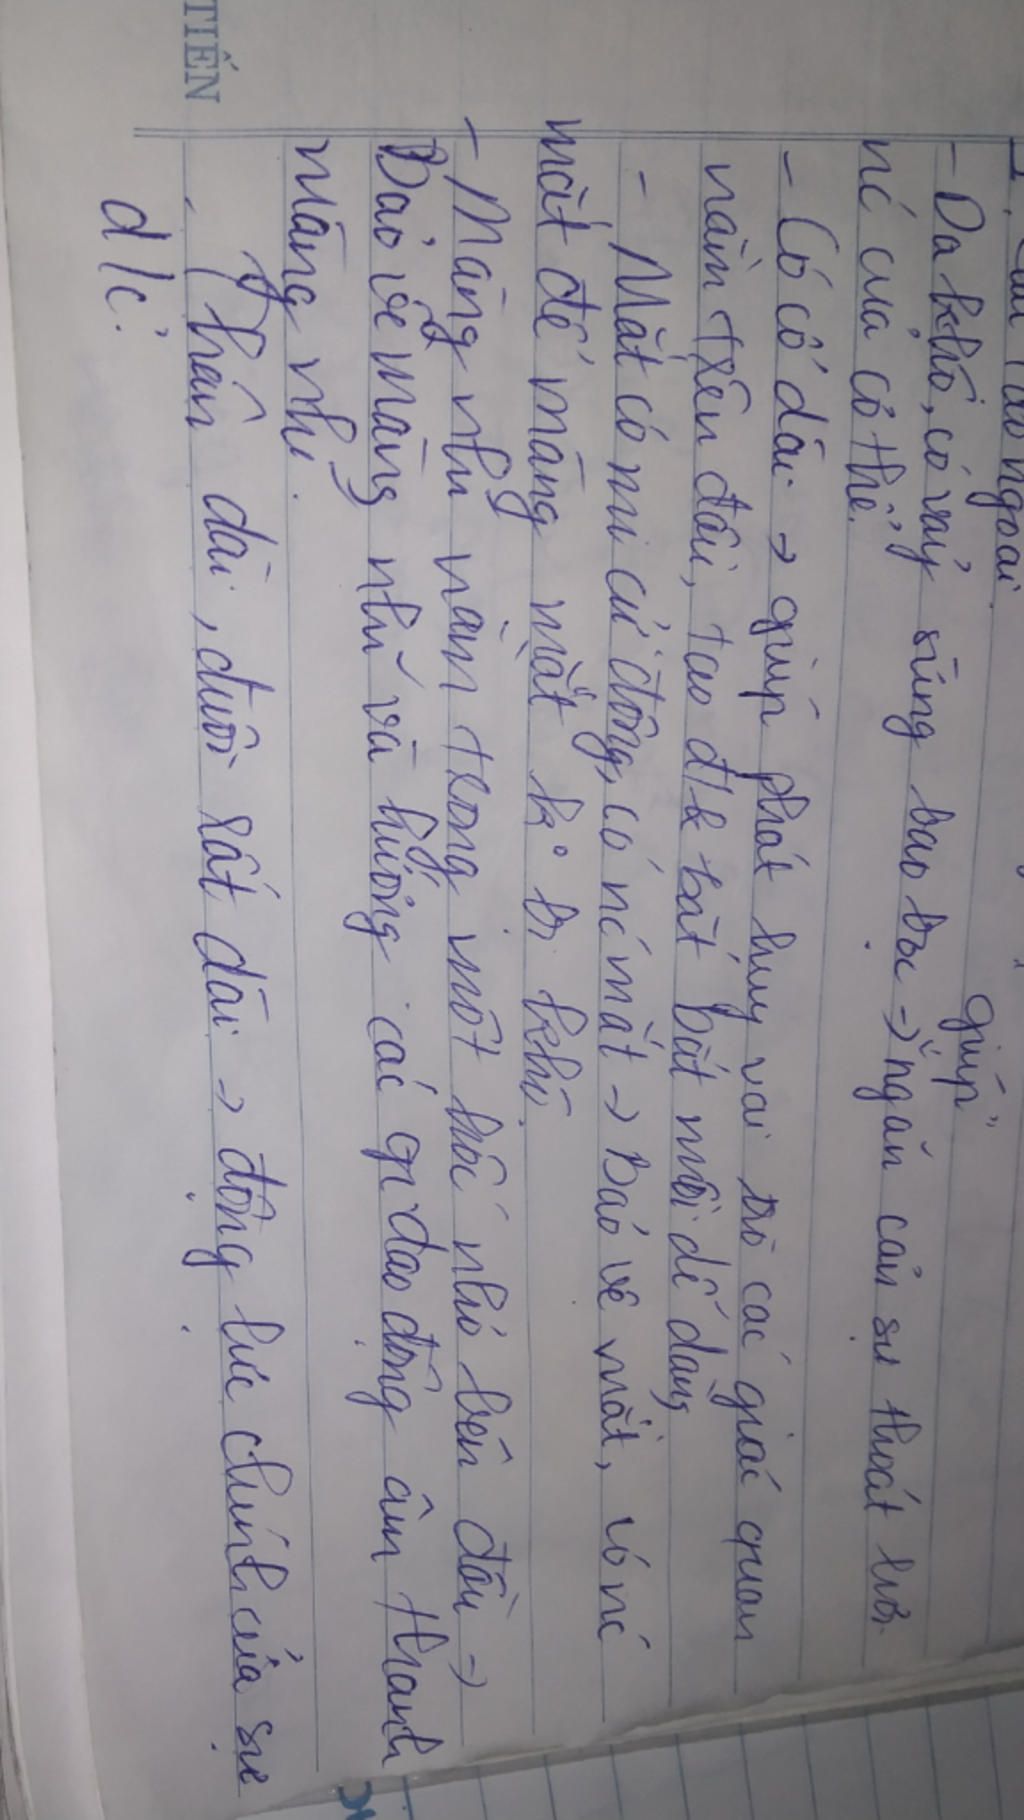 1, Cấu tạo ngoài
giúp
- Da khô, có vảy sừng bao bọc → ngăn cản sự thoát hơi
nc của cơ thể.
- Có cổ dài → giúp phát huy vai trò các giác quan
nằm trên đầu, tạo đ/k bắt bắt mồi dễ dàng
- Mắt có mi cử động, có nc mắt → Bảo vệ mắt, có nc
mắt để màng mắt ko bị khô.
- Màng nhĩ nằm trong một hốc nhỏ bên đầu →
Bảo vệ màng nhĩ và hướng các dao động âm thanh
màng nhĩ.
- Thân dài, đuôi rất dài → động lực chính của sự
d/c.
TIẾN